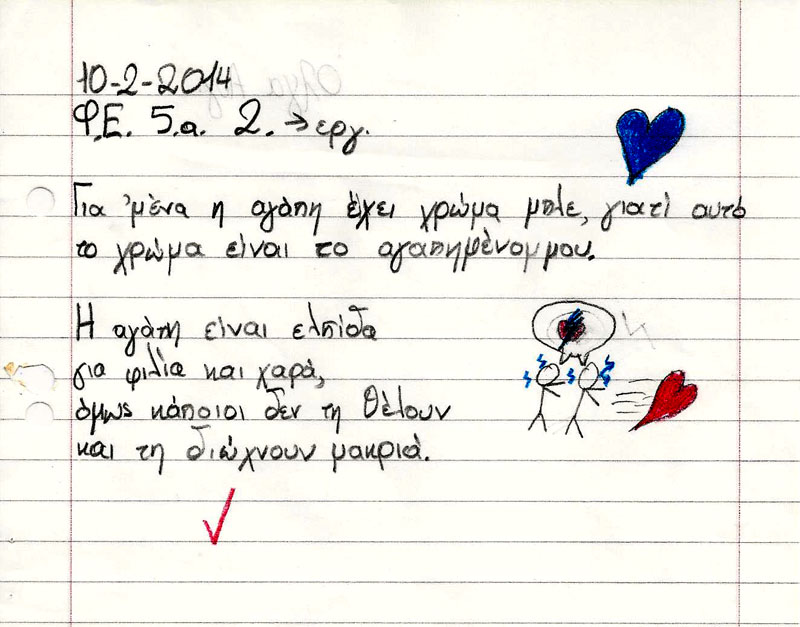 10-2-2014
Φ.Ε. 5.α. 2. → εργ.
Για 'μένα η αγάπη έχει χρώμα μπλε, γιατί αυτό
το χρώμα είναι το αγαπημένομμου.
Η αγάπη είναι ελπίδα
για φιλία και χαρά,
όμως κάποιοι δεν τη θέλουν
και τη διώχνουν μακριά.